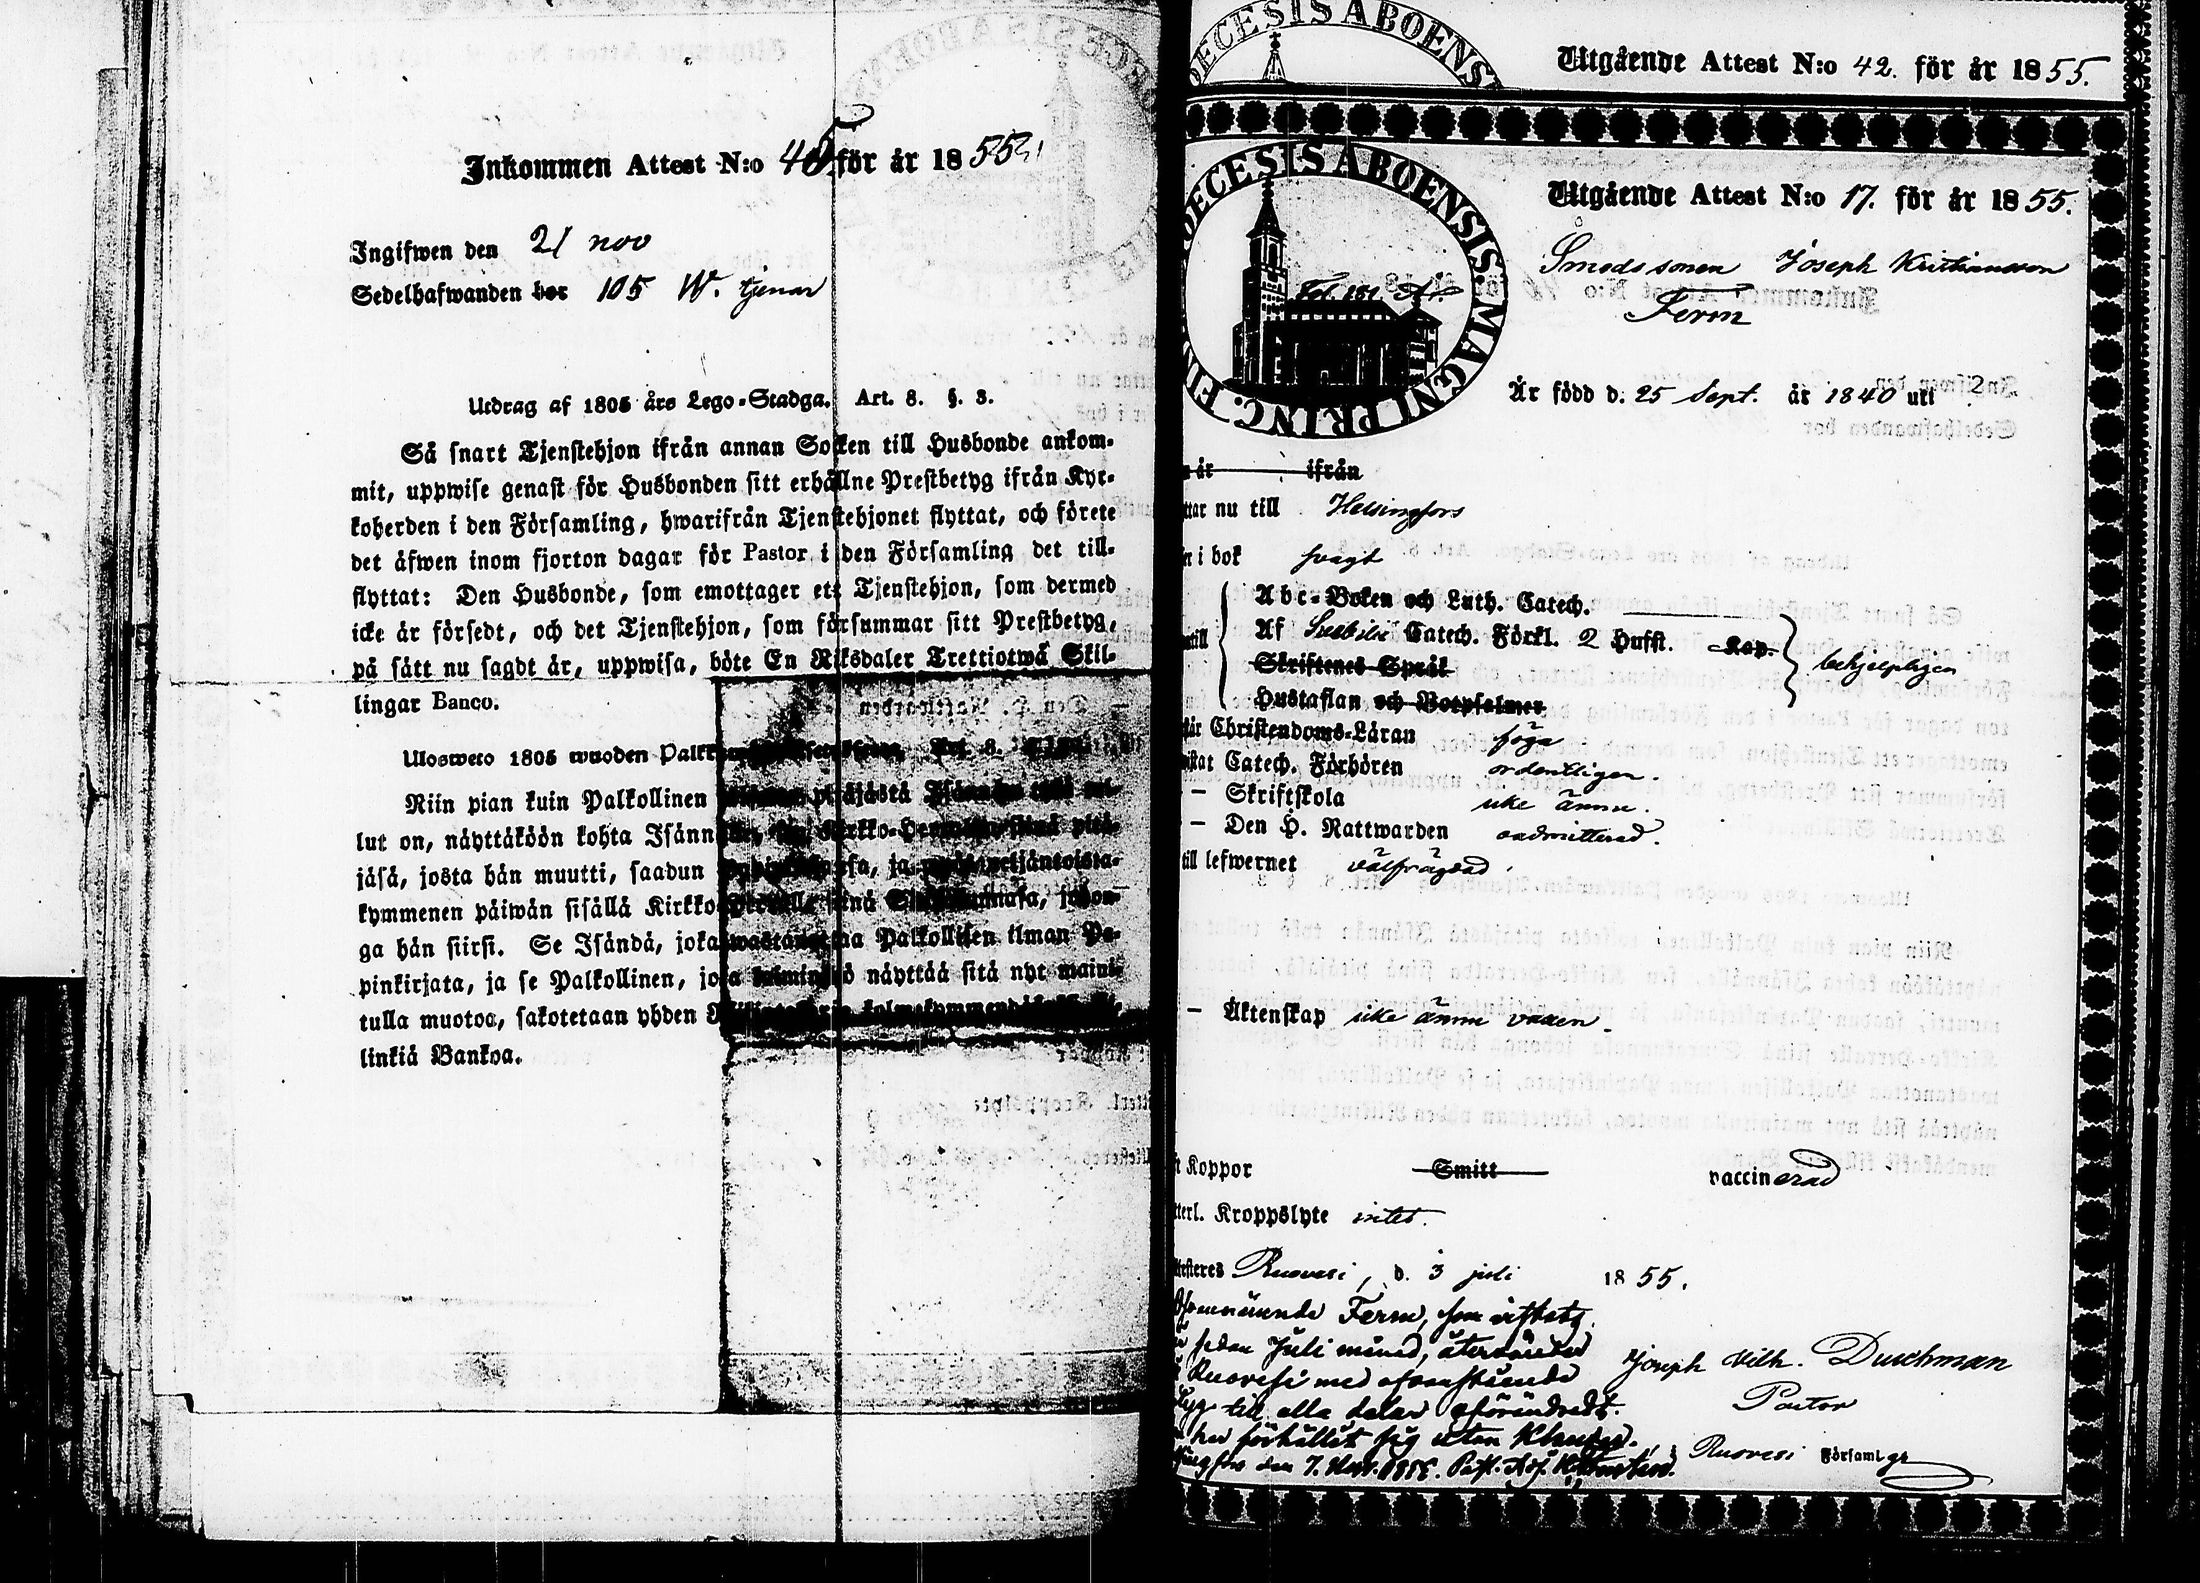 Inkommen Attest N:o 45 för år 1855
Ingifwen den 21 nov
Sedelhafwanden bor 105 W. tjenar
Utdrag af 1805 års Lego-Stadga. Art. 8. §. 3.
Så snart Tjenstehjon ifrån annan Socken till Husbonde ankom-
mit, uppwise genast för Husbonden sitt erhållne Prestbetyg ifrån Kyr-
koherden i den Församling, hwarifrån Tjenstehjonet flyttat, och förete
det äfwen inom fjorton dagar för Pastor i den Församling det till-
flyttat: Den Husbonde, som emottager ett Tjenstehjon, som dermed
icke är försedt, och det Tjenstehjon, som försummar sitt Prestbetyg,
på sätt nu sagdt är, uppwisa, böte En Riksdaler Trettiotwå Skil-
lingar Banco.
Ulosweto 1805 wuoden Art. 8.
Niin pian kuin Palkollinen pitäjästä
lut on, näyttäköön kohta Isänn pitä-
jäsä, josta hän muutti, saadun ja
kymmenen päiwän sisällä Kirkko siinä johon-
ga hän siirsi. Se Isändä, joka wastanottaa Palkollisen ilman Pa-
pinkirjata, ja se Palkollinen, joka näyttää sitä nyt maini-
tulla muotoa, sakotetaan yhden kolmekymmendä
linkiä Bankoa.
DECESIS ABOENS
Utgående Attest N:o 42. för år 1855.
DECESIS ABOENSIS. MAGNI PRINC.
Utgående Attest N:o 17. för år 1855.
Smedssonen Joseph Kristiansson
Ferm
Fol. 151
Är född d. 25 Sept. år 1840 uti
år ifrån
ttar nu till Helsingfors
n i bok svagt
Abc-Boken och Luth. Catech.
Af Svebilii Catech. Förkl. 2 Hufst. Kap.
Skriftenes Språk
Hustaflan och Botpsalmer
behjelpligen
tår Christendoms-Läran föga
stat Catech. Förhören ordentligen.
— Skriftskola icke ännu.
— Den H. Nattwarden oadmitterad.
till lefwernet välfrägdad.
— Äktenskap icke ännu vuxen.
t Koppor Smitt vaccinerad
tterl. Kroppslyte intet.
ttesteres Ruovesi, d. 3 juli 1855.
Ofvannämnde Ferm, som vistats
sedan Juli månad, återvänder
Ruovesi med ofvanstående
till alla delar oförändradt.
har förhållit sig utan klander.
ngfors den 7. Nov. 1855. Past. Adj.
Joseph Vilh. Durchman
Pastor
Ruovesi Församlgs